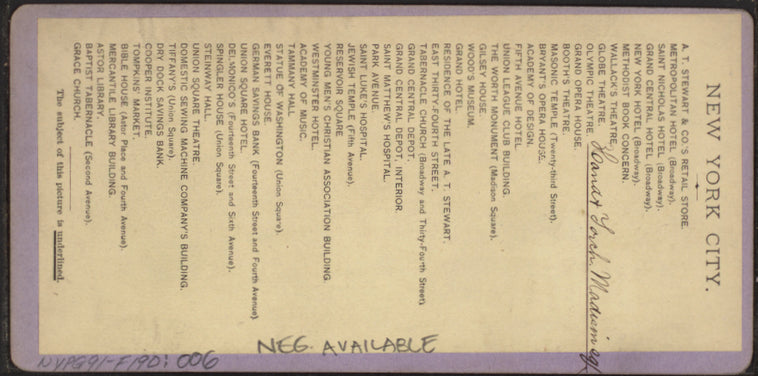 NEW YORK CITY.
A. T. STEWART & CO'S RETAIL STORE.
METROPOLITAN HOTEL (Broadway).
SAINT NICHOLAS HOTEL (Broadway).
GRAND CENTRAL HOTEL (Broadway).
NEW YORK HOTEL (Broadway).
METHODIST BOOK CONCERN.
WALLACK'S THEATRE.
GLOBE THEATRE.
OLYMPIC THEATRE.
GRAND OPERA HOUSE.
Hand & Torch Madison sq
BOOTH'S THEATRE.
MASONIC TEMPLE (Twenty-third Street).
BRYANT'S OPERA HOUSE.
ACADEMY OF DESIGN.
FIFTH AVENUE HOTEL
UNION LEAGUE CLUB BUILDING.
THE WORTH MONUMENT (Madison Square).
GILSEY HOUSE
WOOD'S MUSEUM.
GRAND HOTEL
RESIDENCE OF THE LATE A. T. STEWART.
EAST THIRTY-FOURTH STREET.
TABERNACLE CHURCH (Broadway and Thirty-Fourth Street)
GRAND CENTRAL DEPOT.
GRAND CENTRAL DEPOT, INTERIOR
SAINT MATTHEW'S HOSPITAL.
PARK AVENUE
SAINT LUKE'S HOSPITAL.
JEWISH TEMPLE (Fifth Avenue).
RESERVOIR SQUARE
YOUNG MEN'S CHRISTIAN ASSOCIATION BUILDING
WESTMINSTER HOTEL.
ACADEMY OF MUSIC.
TAMMANY HALL
STATUE OF WASHINGTON (Union Square).
EVERETT HOUSE
GERMAN SAVINGS BANK (Fourteenth Street and Fourth Avenue)
UNION SQUARE HOTEL.
DELMONICO'S (Fourteenth Street and Sixth Avenue).
SPINGLER HOUSE (Union Square).
STEINWAY HALL.
UNION SQUARE THEATRE.
DOMESTIC SEWING MACHINE COMPANY'S BUILDING.
TIFFANY'S (Union Square).
DRY DOCK SAVINGS BANK.
COOPER INSTITUTE.
TOMPKINS' MARKET.
BIBLE HOUSE (Astor Place and Fourth Avenue).
MERCANTILE LIBRARY BUILDING.
ASTOR LIBRARY.
BAPTIST TABERNACLE (Second Avenue).
GRACE CHURCH.
The subject of this picture is underlined.
NEG. AVAILABLE
NYPG91-F190: 006